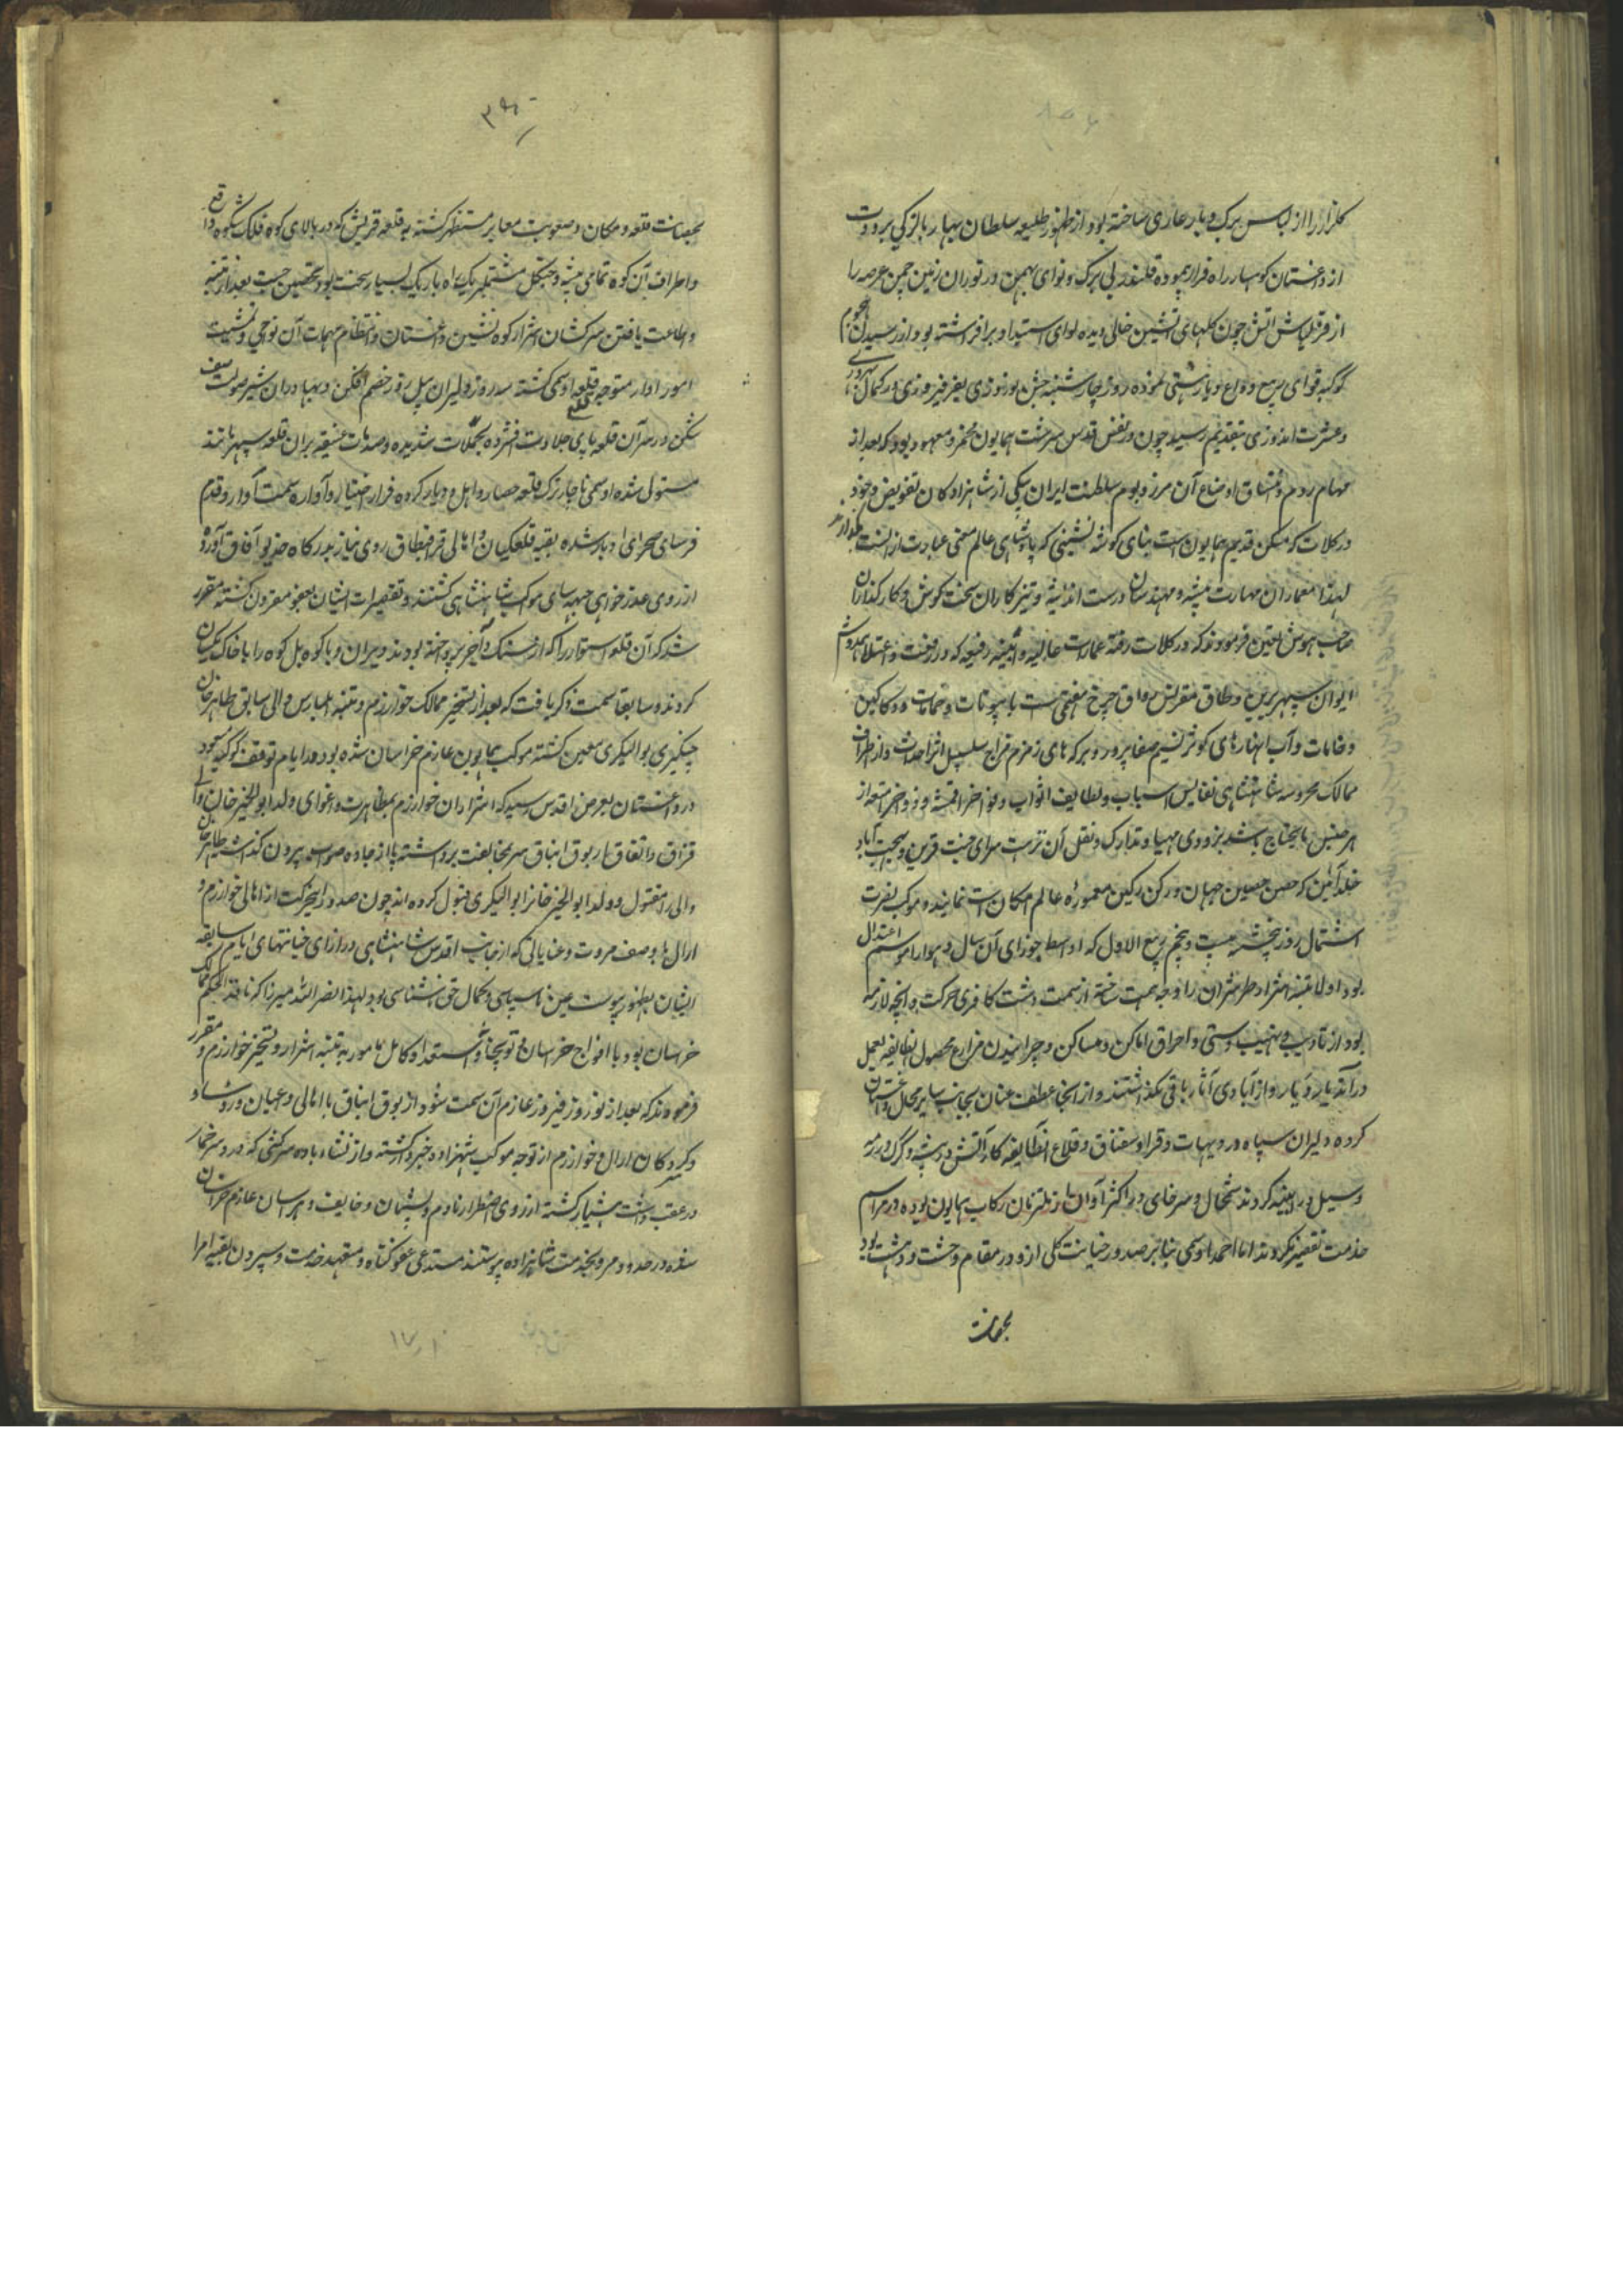 گلزار را از لباس برک و بار عاری ساخته بود از ظهور طلیعه سلطان بهار پالزکی برودت
از داغستان کوهسار راه فرار پیموده قلندر بی برک و نوای بهمن در توران زمین چمن عرصه را
از قزلباش اتش چون کلهای اتشین خالی دیده لوای استبداد برافراشته بود از رسیدن هجوم
کوکبه قوای ربیع وداع نموده روز چهارشنبه جشن نوروزی بفر فیروزی در کمال
و عشرت اندوزی بتقدیم رسید چون در نفس قدس سرشت همایون مخمر و معهود بود که بعد از
مهام روم و اتساق اوضاع آن مرز و بوم سلطنت ایران بیکی از شاهزادکان تفویض و خود
در کلات که مسکن قدیم همایون است بنای کوشه نشینی که پادشاهی عالم معنی عبارت از آنست
لهذا معماران مهارت پیشه و مهندسان درست اندیشه و تیزکاران سخت کوش و کارگذاران
صاحب هوش تعیین فرمودند که در کلات رفته عمارات عالیه و ابنیه رفیعه که در رفعت و اعتلا همدوش
ایوان سپهر برین و طاق مقرنس رواق چرخ هفتمین است با بیوتات و حمامات و دکاکین
و خانات و آب انبارهای کوثر تسنیم صفا پرور و برکه های زمزم مزاج سلسبیل اثر احداث و از اطراف
ممالک محروسه شاهنشاهی نفایس اسباب و لطایف اثواب و فواخر اقمشه و زواخر امتعه از
هر جنس مایحتاج باشد بزودی مهیا و تدارک و نقل آن نزهت سرای جنت قرین و بهجت آباد
خلدآئین که حصن حصین جهان و رکن رکین معموره عالم امکان است نمایند و موکب نصرت
اشتمال روز پنجشنبه بیست و پنجم ربیع الاول که اواسط جوزای آن سال و هوا را موسم اعتدال
بود اولا تنبیه اشرار طبرسران را وجه همت ساخته از سمت دشت کافری حرکت و انچه لازمه
بود از تادیب و نهب و احراق اماکن و مساکن و چرانیدن مزارع محصول انطایفه بعمل
در آمد دیار و از آبادی آثار باقی نکذاشتند و از انجا عطف عنان بجانب سایر محال داغستان
کرده دلیران سپاه در دیهات و قرا و سقناق و قلاع انطایفه کار آتش در بیشه و کرک در رمه
و سیل در ابنیه کردند شمخال و سرخای در اکثر آوان از ملتزمان رکاب همایون بوده در مراسم
خدمت تقصیر نکردند اما احمد اوسمی بنا بر صدور خیانت کلی ازو در مقام وحشت و دهشت بود
بحصانت
بحصانت قلعه و مکان و صعوبت معابر مستظهر کشته به قلعه قریش که در بالای کوه فلک شکوه واقع
و اطراف آن کوه تمامی بیشه و جنکل مشتمل بر یک راه باریک بسیار سخت بود تحصین جست بعد از تنبیه
و اطاعت یافتن سرکشان اشرار کوه نشین داغستان و انتظام مهمات آن نواحی و تمشیت
امور ادار متوجه قلعه اوسمی کشته سه روز دلیران پیل زور خصم افکن و بهادران شیر صولت صف
شکن در سر آن قلعه پای جلادت فشرده بحملات شدیده و صدمات عنیفه بران قلعه سپهر مانند
مستولی شده اوسمی ناچار ترک قلعه حصار و اهل و دیار کرده فرار اختیار و آواره سمت آوار و قدم
فرسای صحرای ادبار شده بقیه قلعکیان و اهالی قراقیطاق روی نیاز بدرکاه خدیو آفاق آورده
از روی عذرخواهی جبهه سای موکب شاهنشاهی کشتند و تقصیرات ایشان بعفو مقرون کشته مقرر
شد که آن قلعه استوار را که از سنک و آجر پرداخته بودند ویران و با کوه پل کوه را با خاک یکسان
کردند و سابقا سمت ذکر یافت که بعد از تسخیر ممالک خوارزم و تنبیه ایلبارس والی سابق طاهر خان
چنکیزی بوالیکری معین کشته موکب همایون عازم خراسان شده بود در ایام توقف کوکبه مسعود
در داغستان بعرض اقدس رسید که اشرار خوارزم بمظاهرت و اغوای ولد ابوالخیر خان والی
قزاق و اتفاق ارتوق ایناق سر بمخالفت برداشته پا از جاده صواب بیرون کذاشته طاهر خان
والی را مقتول و ولد ابوالخیر خانرا بوالیکری قبول کرده اند چون صدور این حرکت از اهالی خوارزم و
ارال با وصف مروت و عنایاتی که از جانب اقدس شاهنشاهی در ازای خیانتهای ایام سابقه
ایشان بظهور پیوست عین ناسپاسی و کمال حق نشناسی بود لهذا نصرالله میرزا که نافذ الحکم ممالک
خراسان بود با افواج خراسان و توپخانه و استعداد کامل مامور به تنبیه اشرار و تسخیر خوارزم و مقرر
فرمودند که بعد از نوروز فیروز عازم آن سمت شود ارتوق ایناق با اهالی و اعیان و رؤساء
و کردکان ارال و خوارزم از توجه موکب شهزاده خبردار کشته و از نشاء باده سرکشی که درد سر خمار
در عقب داشت هشیار کشته از روی اضطرار نادم و پشیمان و خایف و هراسان عازم خراسان
شده در حدود مرو بخدمت شاهزاده پیوستند مستدعی عفو کناه و متعهد خدمت و سپردن بقیه امرا